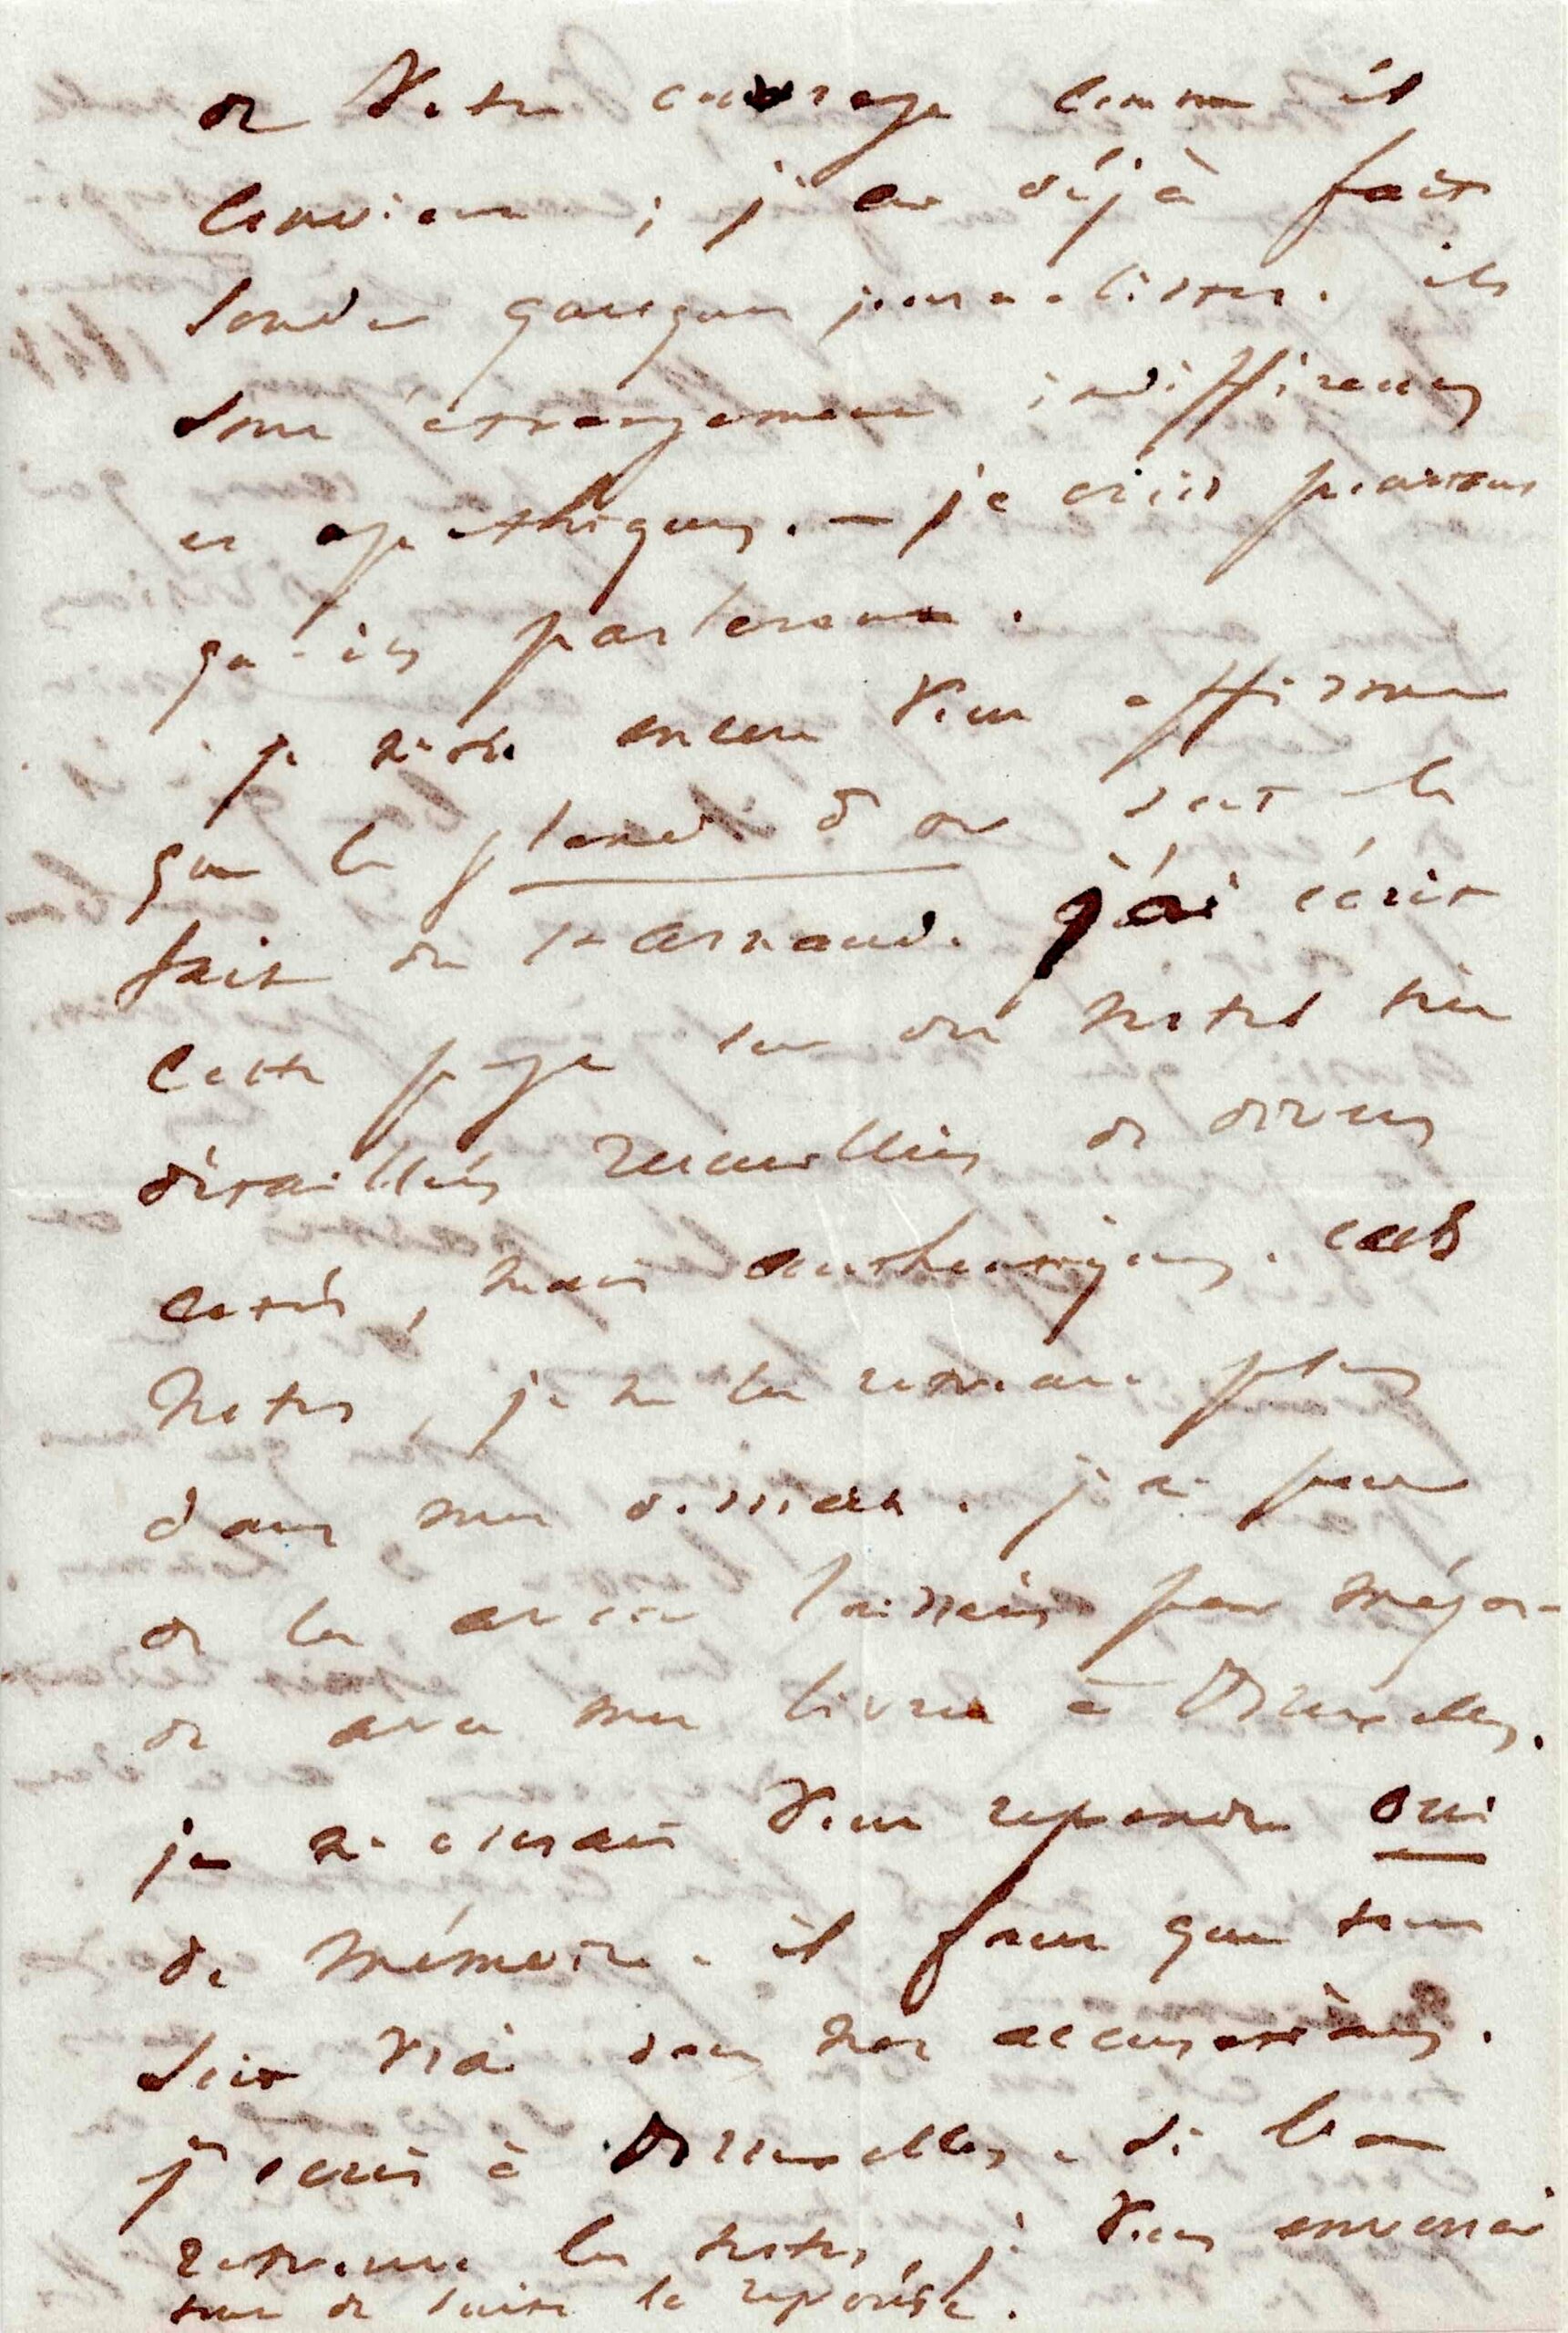 de votre courage comme il
convient ; j'ai déjà fait
sonder quelques journalistes. ils
sont étrangement indifférents
et apathiques. — je crois pourtant
qu'ils parleront.
je n'ose encore vous affirmer
que le plané d'or soit le
fait de St Arnaud. j'ai écrit
cette page sur des notes très
détaillées recueillies de divers
côtés, mais authentiques. ces
notes, je ne les retrouve plus
dans mon dossier. j'ai peur
de les avoir laissées par mégar-
de avec mes livres à Bruxelles.
je n'oserais vous répondre oui
de mémoire. il faut que tout
soit vrai dans nos accusations.
j'écris à Bruxelles. si l'on
retrouve les notes, je vous enverrai
tout de suite la réponse.